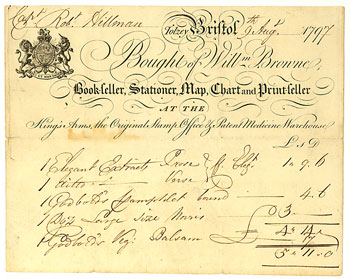 Capt. Robt. Hillman
Tolzey Bristol 9th Augt. 1797
Bought of Willm Browne,
Bookseller, Stationer, Map, Chart and Printseller
AT THE
King's Arms, the Original Stamp Office & Patent Medicine Warehouse
L s D
1 Elegant Extracts Prose 1. 9. 6
1 ditto Verse
1 Godbold's Pamphlet bound 4. 6
7 Doz Large size 3
Godbold's Veg: Balsam 4
5 11. 0